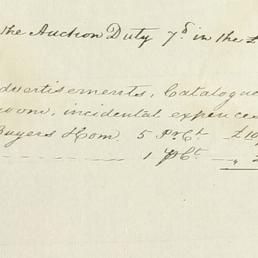 the Auction Duty 7d in the £
dvertisements, Catalogue
oom, incidental expences
Buyers Com. 5 Pr Ct — £10
1 Pr Ct — „